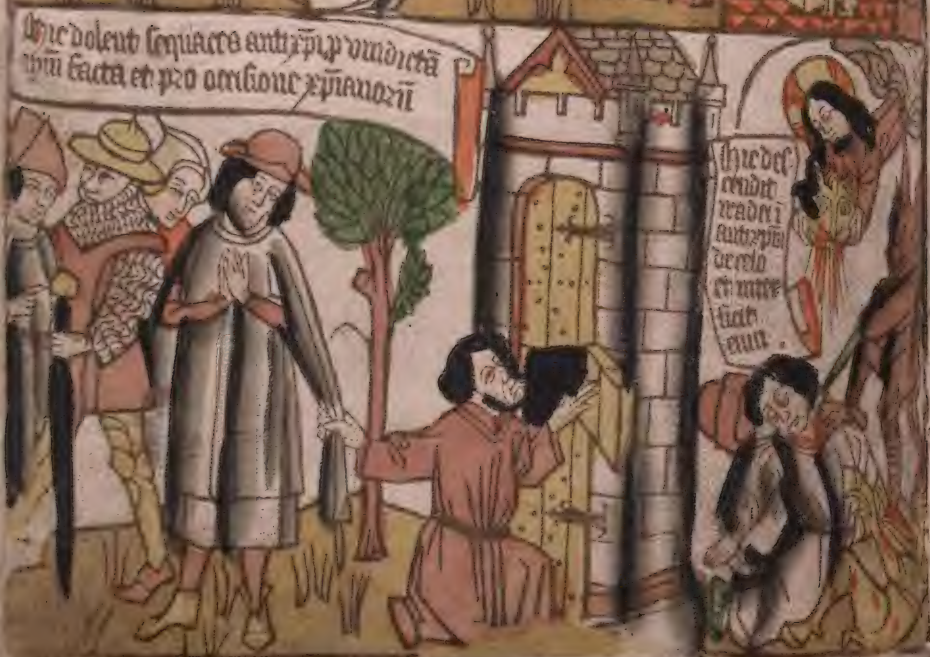 Hic dolent sequaces antixpi p vindictā
ipiū facta et pro occisione xpianorū
Hic des
cendit
antixpm
de celo
et inter
ficit
eum .